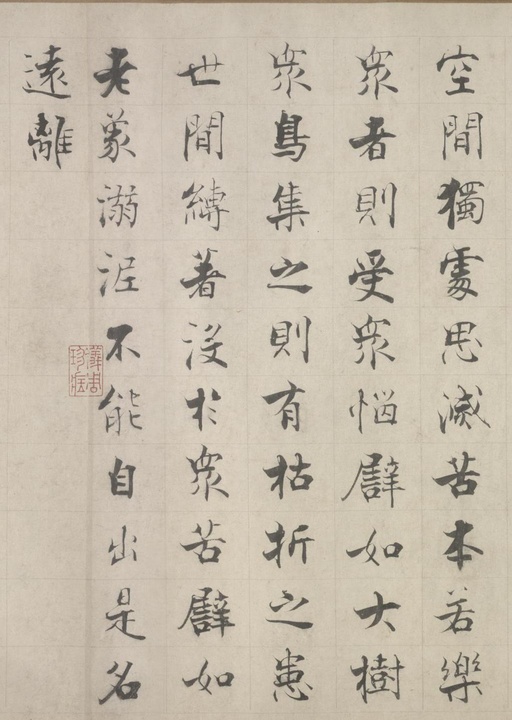 空閒獨處思滅苦本若樂
衆者則受衆惱譬如大樹
衆鳥集之則有枯折之患
世間縛著沒於衆苦譬如
老象溺泥不能自出是名
遠離